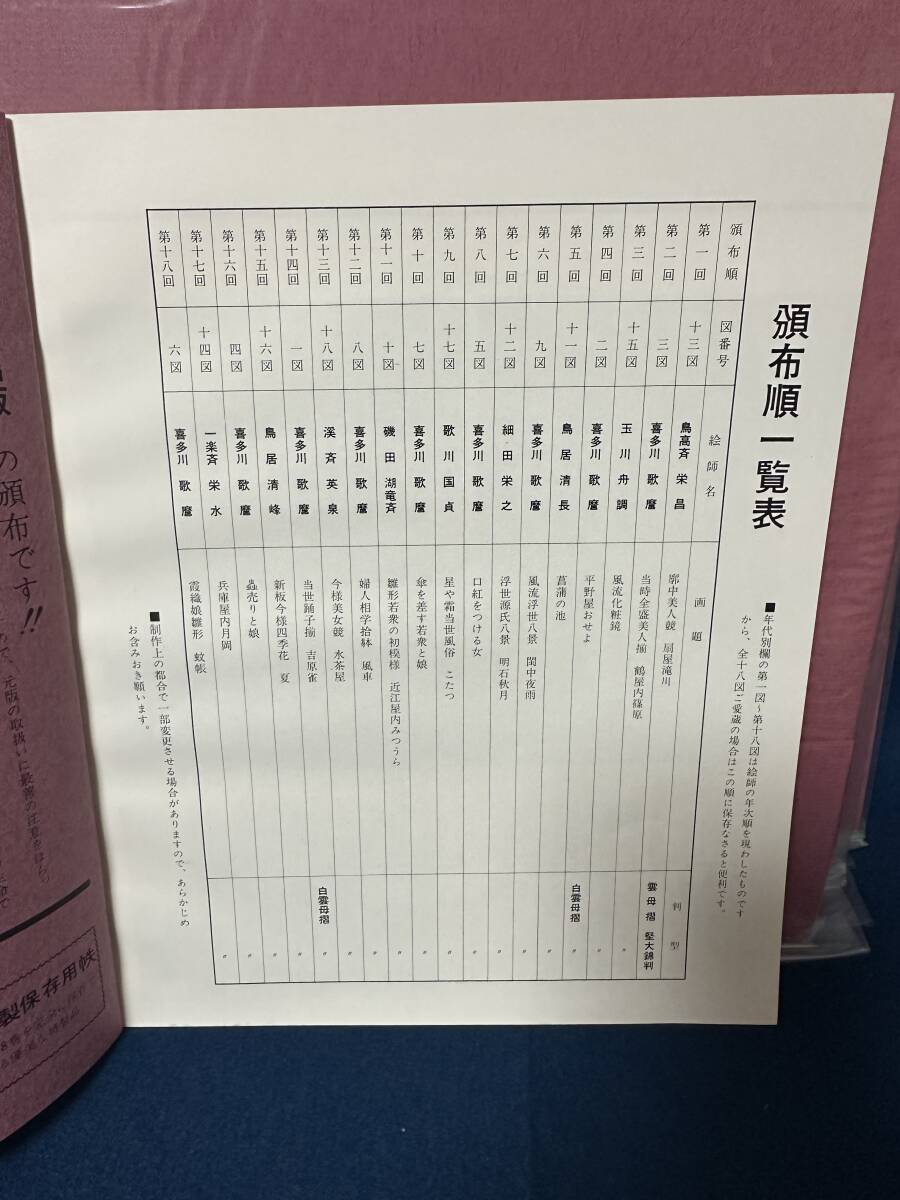 頒布順一覧表
■年代別欄の第一図～第十八図は絵師の年次順を現わしたものです
から、全十八図ご愛蔵の場合はこの順に保存なさると便利です。
頒布順 図番号 絵師名 画題 判型
第一回 十三図 鳥高斉栄昌 廓中美人競 扇屋滝川 雲母摺 竪大錦判
第二回 三図 喜多川歌麿 当時全盛美人揃 鶴屋内篠原 〃
第三回 十五図 玉川舟調 風流化粧鏡 〃
第四回 二図 喜多川歌麿 平野屋おせよ 白雲母摺 〃
第五回 十一図 鳥居清長 菖蒲の池 〃
第六回 九図 喜多川歌麿 風流浮世八景 閨中夜雨 〃
第七回 十二図 細田栄之 浮世源氏八景 明石秋月 〃
第八回 五図 喜多川歌麿 口紅をつける女 〃
第九回 十七図 歌川国貞 星や霜当世風俗 こたつ 〃
第十回 七図 喜多川歌麿 傘を差す若衆と娘 〃
第十一回 十図 磯田湖竜斉 雛形若衆の初模様 近江屋内みつうら 〃
第十二回 八図 喜多川歌麿 婦人相学拾躰 風車 〃
第十三回 十八図 渓斉英泉 今様美女競 水茶屋 白雲母摺 〃
第十四回 一図 喜多川歌麿 当世踊子揃 吉原雀 〃
第十五回 十六図 鳥居清峰 新板今様四季花 夏 〃
第十六回 四図 喜多川歌麿 蟲売りと娘 〃
第十七回 十四図 一楽斉栄水 兵庫屋内月岡 〃
第十八回 六図 喜多川歌麿 霞織娘雛形 蚊帳 〃
■制作上の都合で一部変更させる場合がありますので、あらかじめ
お含みおき願います。
の頒布です!!
元版の取扱いに最善の注意をはらい
製保存用帙